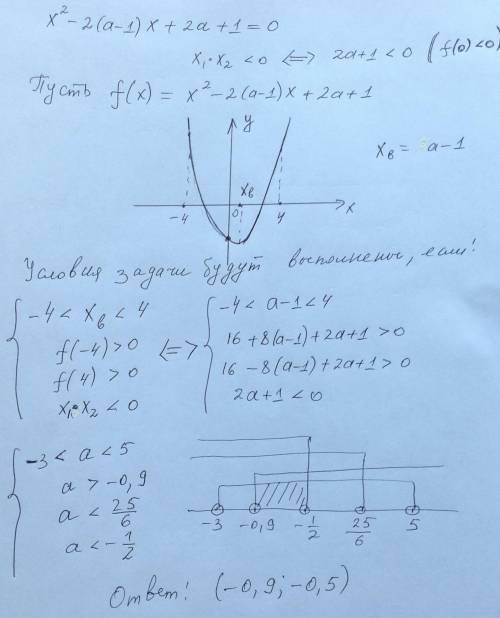 x² - 2(a-1)x + 2a + 1 = 0
x₁·x₂ < 0 <=> 2a+1 < 0 (f(0)<0)
Пусть f(x) = x² - 2(a-1)x + 2a + 1
y
x_в = a-1
x_в
-4 0 4 x
Условия задачи будут выполнены, если:
{ -4 < x_в < 4
f(-4) > 0
f(4) > 0
x₁·x₂ < 0
<=>
{ -4 < a-1 < 4
16 + 8(a-1) + 2a + 1 > 0
16 - 8(a-1) + 2a + 1 > 0
2a + 1 < 0
{ -3 < a < 5
a > -0,9
a < 25/6
a < -1/2
-3 -0,9 -1/2 25/6 5
Ответ: (-0,9; -0,5)